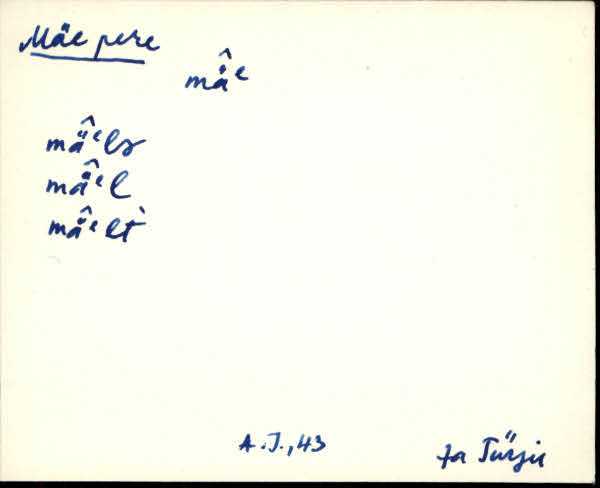 Mäe pere
mä̂ᵉ
mä̂ᵉlꝫ
mä̂ᵉl
mä̂ᵉlt̀
A.J., 43
Jä Türju